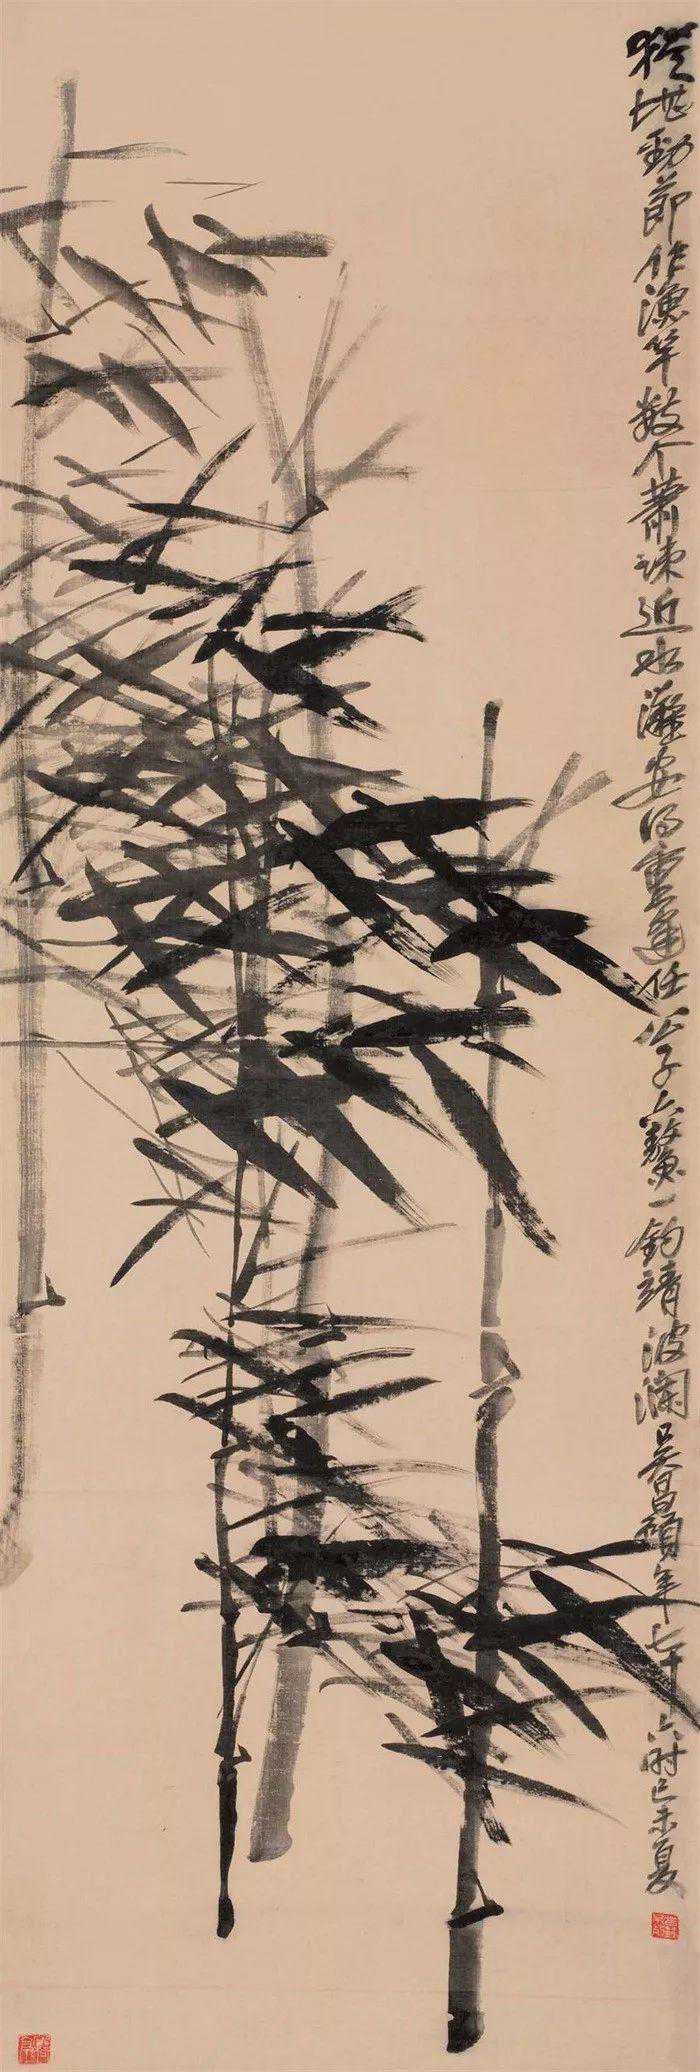 猶堪勁節作漁竿數个蕭疎近水灘安得重逢任公子六鰲一釣靖波瀾吳昌碩年七十六時己未夏